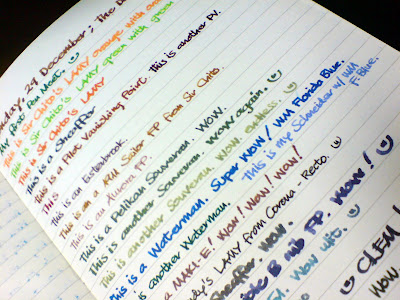 day, 27 December; The D
My First Pen Meet. ☺
This is Sir Chito's LAMY orange with oran
This is Sir Chito's LAMY green with green
This is Sir Chito's LAMY
This is a Sheaffer
This is a Pilot Vanishing Point. This is another PV.
This is an Esterbrook.
This is an ARM Sailor FP From Sir Chito.
This is an Aurora FP.
This is a Pelikan Souveran. WOW.
This is another Souveran. Wow again. ☺
This is another Souveran. Wow endless. ☺
This is a Waterman. Super WOW / WM Florida Blue.
This is another Waterman. This is my Schneider w/ WM F. Blue.
is a M.A.C.E! WOW! WOW! WOW!
dy's LAMY from Corona - Recto. ☺
Sheaffer. WOW.
ble B nib FP. Wow! ☺
WOW Wit. ☺ CLEM!